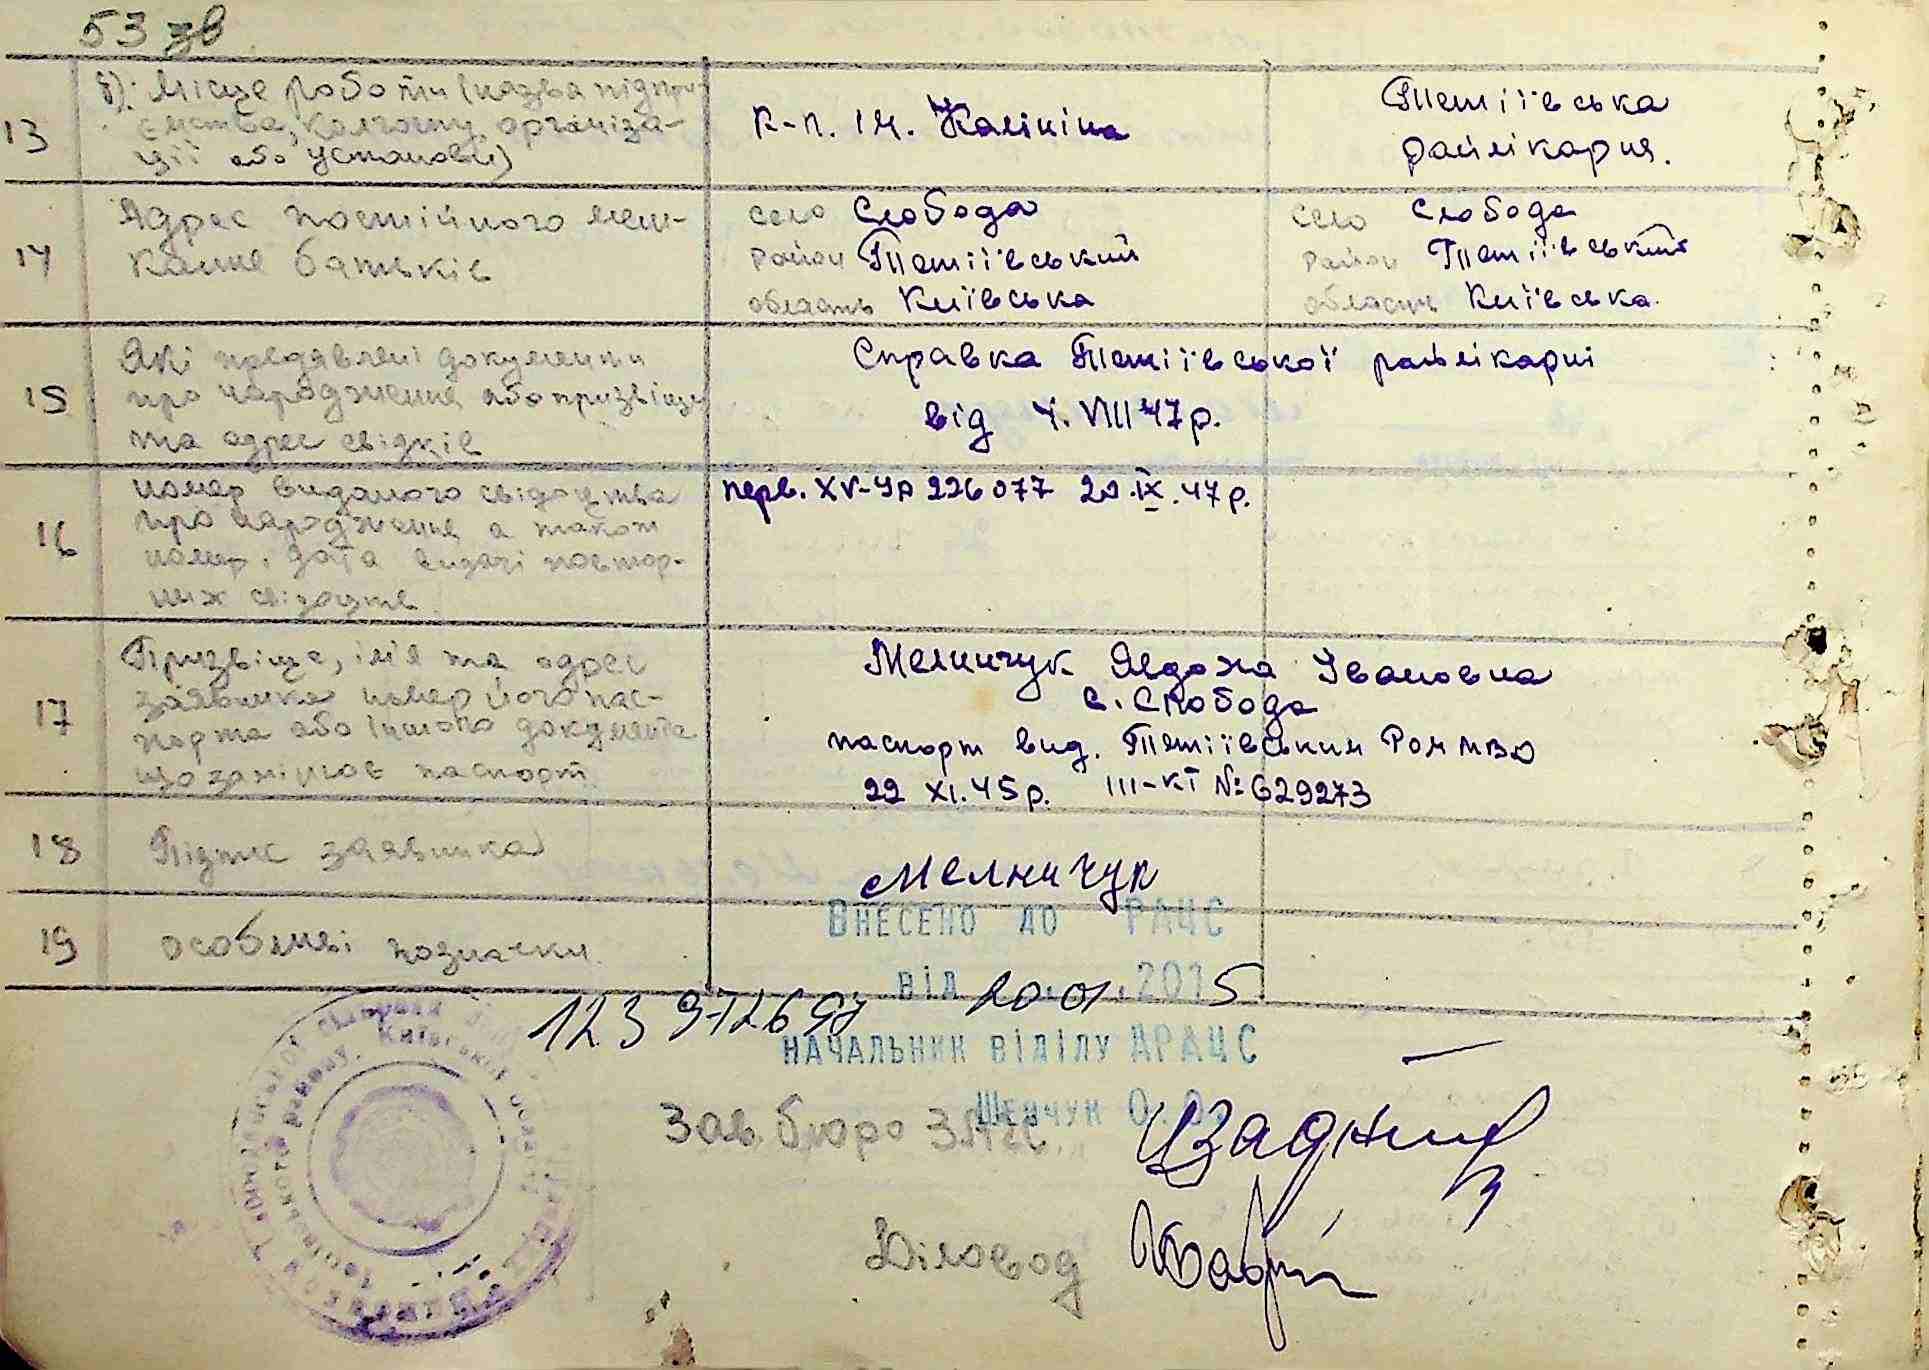 53 зв
13 б). Місце роботи (назва підпри- к-п. ім. Калініна Тетіївська
ємства, колгоспу, організа- райлікарня.
ції або установи)
14 Адрес постійного меш- село Слобода село Слобода
кання батьків район Тетіївський район Тетіївський
область Київська область Київська
15 Які предявлені документи Справка Тетіївської райлікарні
про народження або призвіще від 4.VIII 47р.
та адрес свідків
16 номер виданого свідоцтва перв. XV-УР 226077 20.IX.47р.
про народження а також
номер і дата видачі повтор-
них свідоцтв
17 Призвіще, ім'я та адрес Мельничук Явдоха Івановна
заявника номер його пас- с. Слобода
порта або іншого документа паспорт вид. Тетіївським Ром МВД
що заміняє паспорт 22 XI.45р. III-КТ № 629273
18 Підпис заявника Мелничук
19 Особливі позначки.
Внесено до РАЦС
від 20.01.2015
123
начальник відділу ДРАЦС
Шевчук О.О.
Зав. бюро ЗАГС
Діловод
Київської області